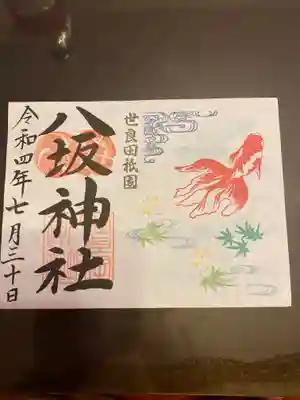 世良田祇園
八坂神社
令和四年七月三十日